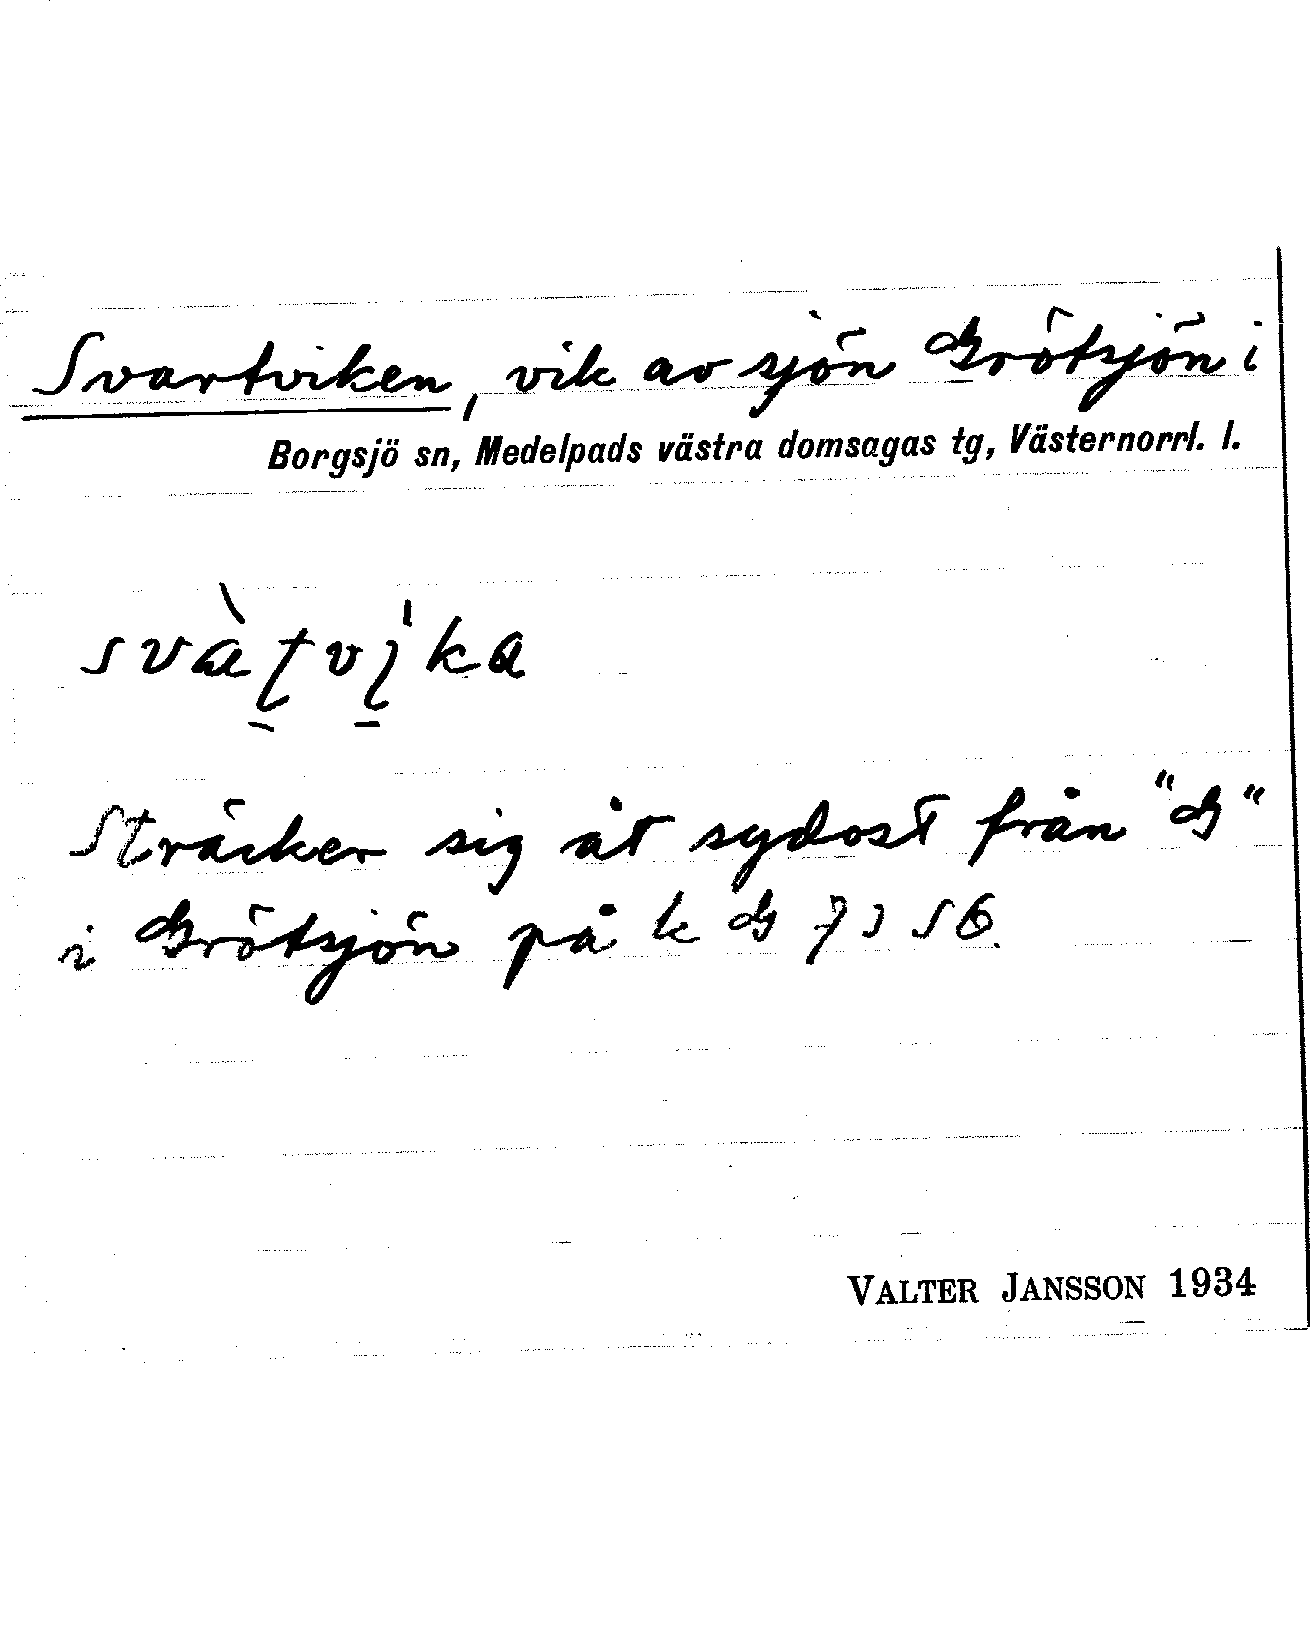 Svartviken, vik av sjön Grötsjön i
Borgsjö sn, Medelpads västra domsagas tg, Västernorrl. l.
svàʈvi̢ka
Sträcker sig åt sydost från "G"
i Grötsjön på k G 7 J S6.
VALTER JANSSON 1934